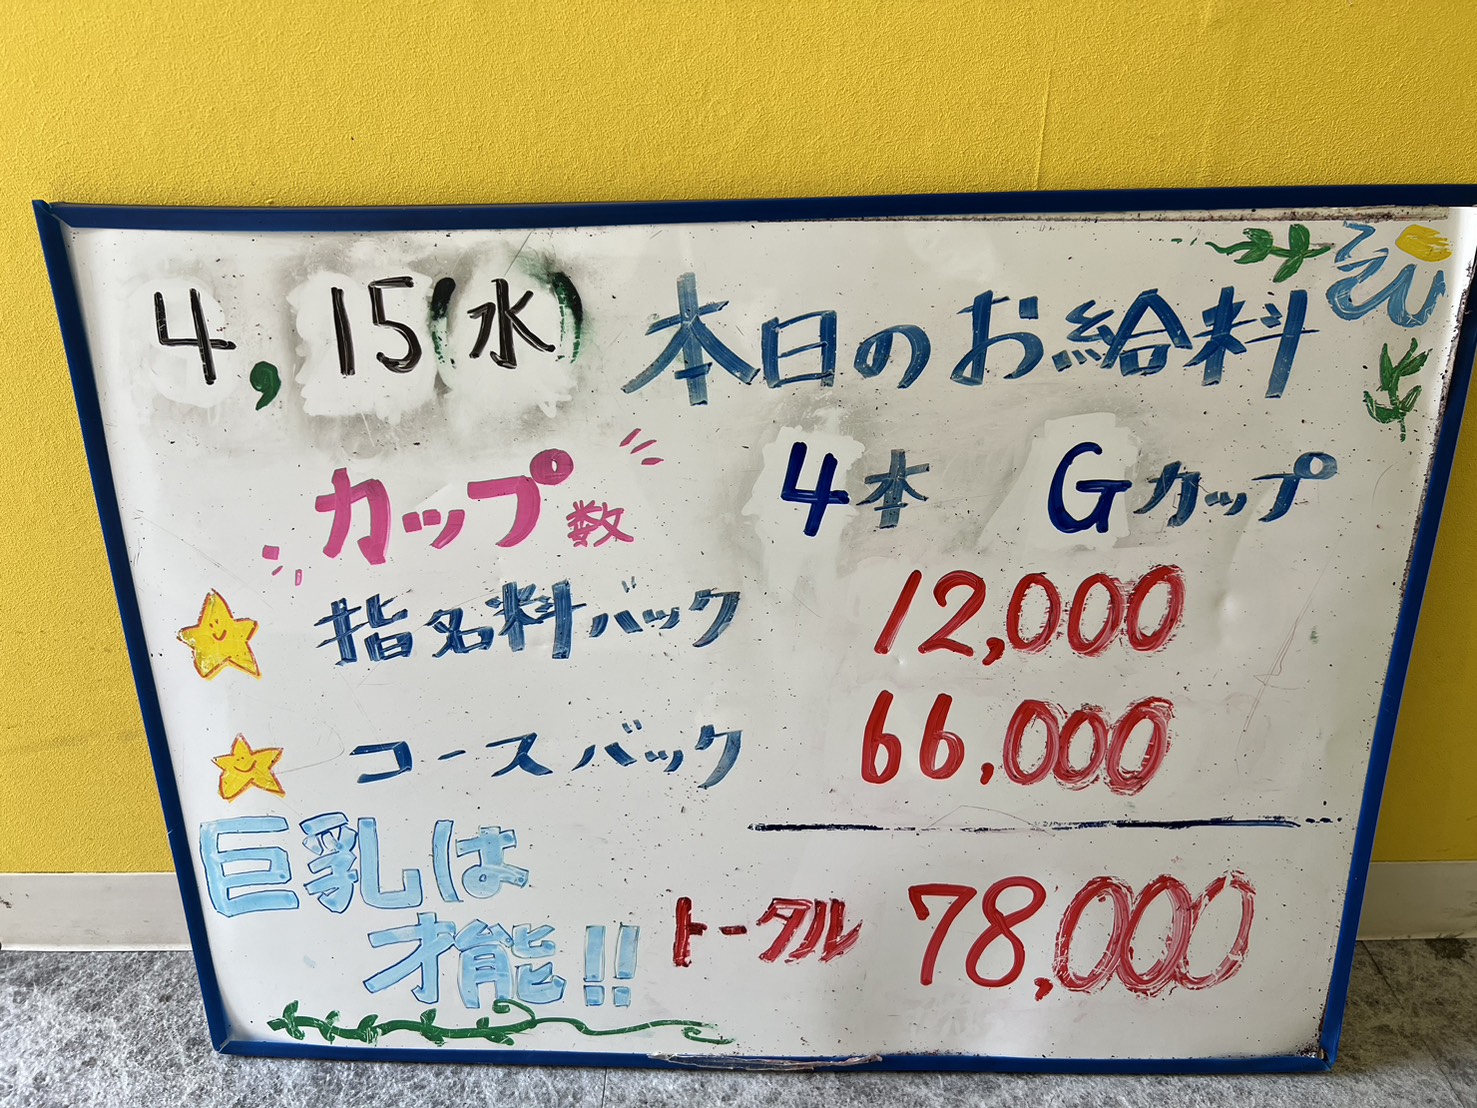 4,15(水) 本日のお給料
カップ数 4本 Gカップ
指名料バック 12,000
コースバック 66,000
巨乳は
才能!! トータル 78,000